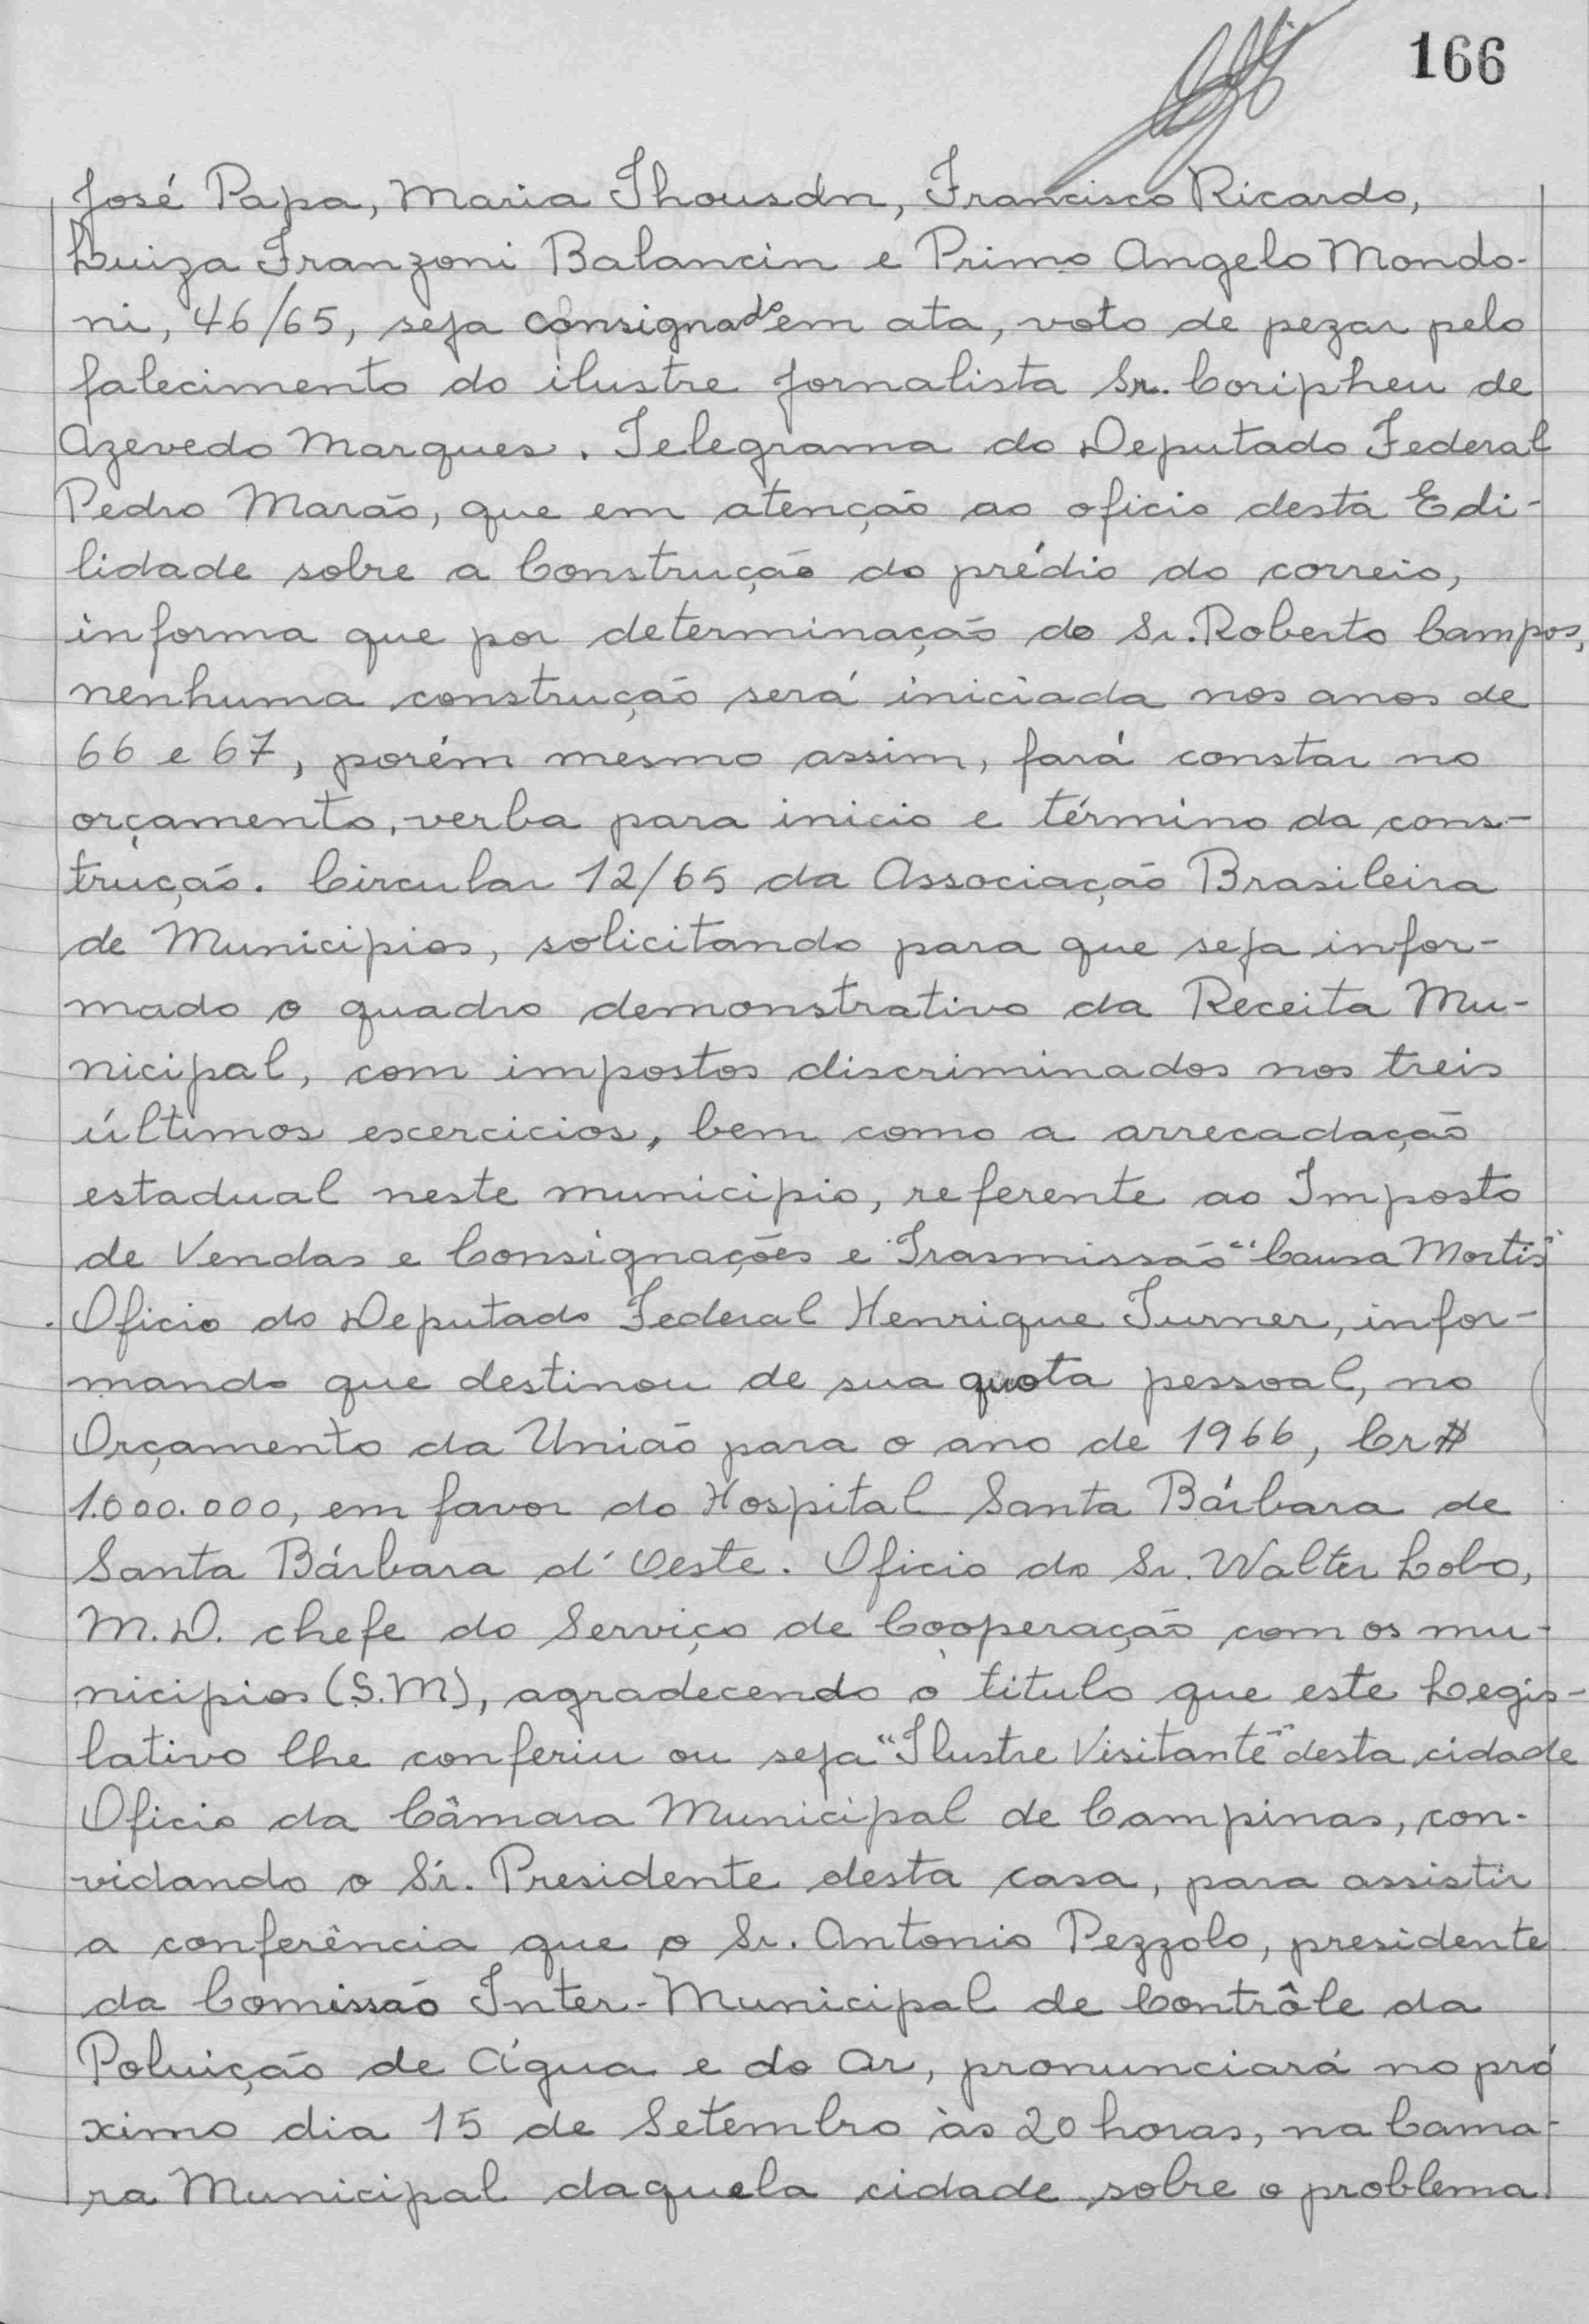 166
José Papa, Maria Thousdn, Francisco Ricardo,
Luiza Franzoni Balancin e Primo Angelo Mondo-
ni, 46/65, seja consignado em ata, voto de pezar pelo
falecimento do ilustre jornalista Sr. Coripheu de
Azevedo Marques. Telegrama do Deputado Federal
Pedro Marão, que em atenção ao oficio desta Edi-
lidade sobre a Construção do prédio do correio,
informa que por determinação do Sr. Roberto Campos,
nenhuma construção será iniciada nos anos de
66 e 67, porém mesmo assim, fará constar no
orçamento, verba para inicio e término da cons-
trução. Circular 12/65 da Associação Brasileira
de Municipios, solicitando para que seja infor-
mado o quadro demonstrativo da Receita Mu-
nicipal, com impostos discriminados nos treis
últimos excercicios, bem como a arrecadação
estadual neste municipio, referente ao Imposto
de Vendas e Consignações e Trasmissão "Causa Mortis"
. Oficio do Deputado Federal Henrique Turner, infor-
mando que destinou de sua quota pessoal, no
Orçamento da União para o ano de 1966, Cr$
1.000.000, em favor do Hospital Santa Bárbara de
Santa Bárbara d'Oeste. Oficio do Sr. Walter Lobo,
M.D. chefe do Serviço de Cooperação com os mu-
nicipios (S.M), agradecendo o titulo que este Legis-
lativo lhe conferiu ou seja "Ilustre Visitante" desta cidade
Oficio da Câmara Municipal de Campinas, con-
vidando o Sr. Presidente desta casa, para assistir
a conferência que o Sr. Antonio Pezzolo, presidente
da Comissão Inter-Municipal de Contrôle da
Poluição de Água e do Ar, pronunciará no pró
ximo dia 15 de Setembro às 20 horas, na Cama-
ra Municipal daquela cidade sobre o problema